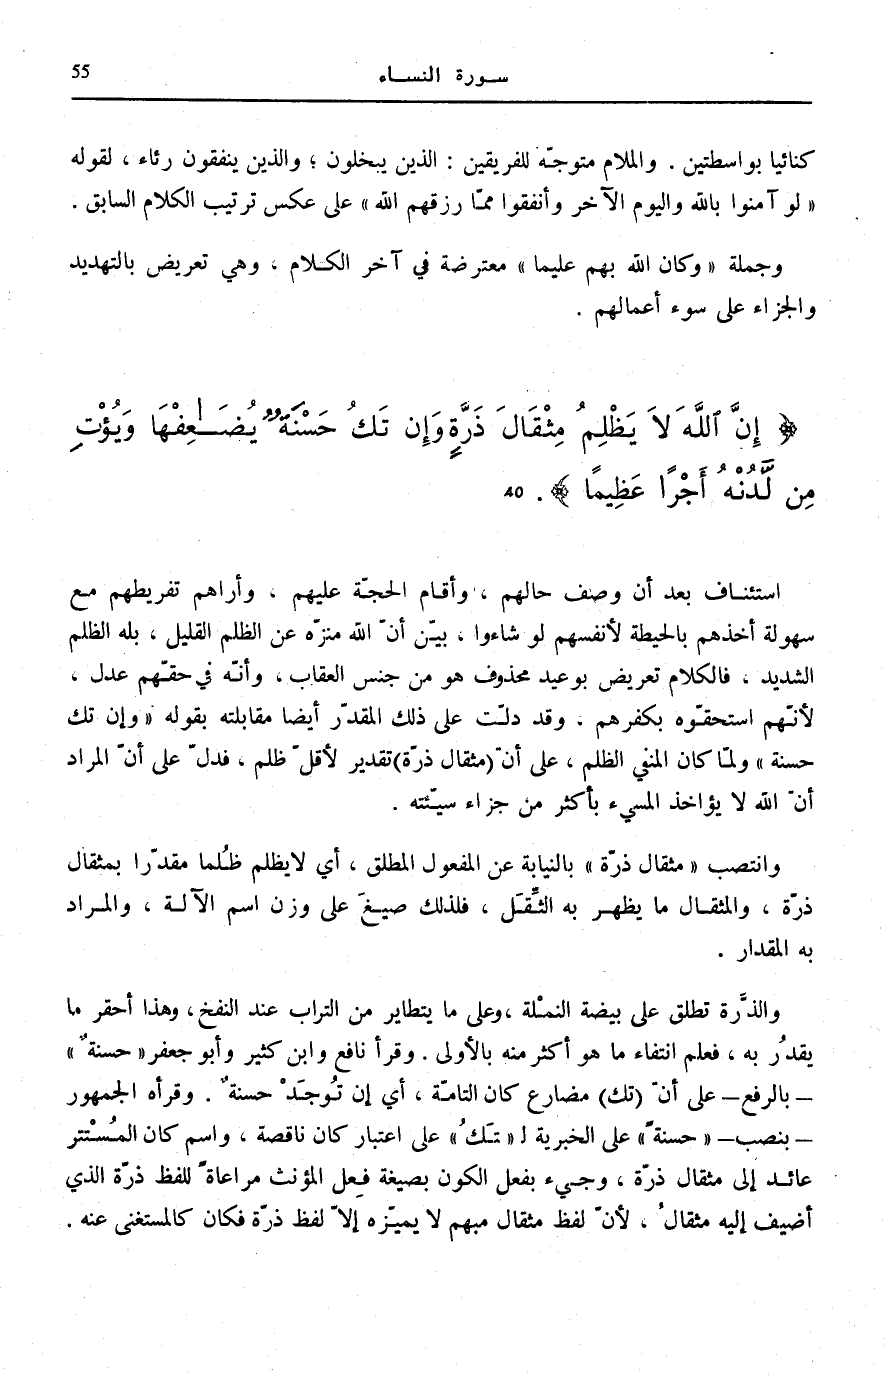 سورة النساء 55
كنائيا بواسطتين . والملام متوجّه للفريقين : الذين يبخلون ؛ والذين ينفقون رئاء ، لقوله
« لو آمنوا بالله واليوم الآخر وأنفقوا ممّا رزقهم الله » على عكس ترتيب الكلام السابق .
وجملة « وكان الله بهم عليما » معترضة في آخر الكلام ، وهي تعريض بالتهديد
والجزاء على سوء أعمالهم .
﴿ إِنَّ ٱللَّهَ لَا يَظْلِمُ مِثْقَالَ ذَرَّةٍ وَإِن تَكُ حَسَنَةٌ يُضَـٰعِفْهَا وَيُؤْتِ
مِن لَّدُنْهُ أَجْرًا عَظِيمًا ﴾ . 40
استئناف بعد أن وصف حالهم ، وأقام الحجّة عليهم ، وأراهم تفريطهم مع
سهولة أخذهم بالحيطة لأنفسهم لو شاءوا ، بيّن أنّ الله منزّه عن الظلم القليل ، بله الظلم
الشديد ، فالكلام تعريض بوعيد محذوف هو من جنس العقاب ، وأنّه في حقّهم عدل ،
لأنّهم استحقّوه بكفرهم . وقد دلّت على ذلك المقدّر أيضا مقابلته بقوله « وإن تك
حسنة » ولمّا كان المنفي الظلم ، على أنّ (مثقال ذرّة) تقدير لأقلّ ظلم ، فدلّ على أنّ المراد
أنّ الله لا يؤاخذ المسيء بأكثر من جزاء سيّئته .
وانتصب « مثقال ذرّة » بالنيابة عن المفعول المطلق ، أي لا يظلم ظُلما مقدّرا بمثقال
ذرّة ، والمثقال ما يظهر به الثِّقَل ، فلذلك صيغَ على وزن اسم الآلة ، والمراد
به المقدار .
والذَّرة تطلق على بيضة النمْلة ، وعلى ما يتطاير من التراب عند النفخ ، وهذا أحقر ما
يقدُر به ، فعلم انتفاء ما هو أكثر منه بالأولى . وقرأ نافع وابن كثير وأبو جعفر « حسنةٌ »
– بالرفع – على أنّ (تك) مضارع كان التامّة ، أي إن تُوجَدْ حسنةٌ . وقرأه الجمهور
– بنصب – « حسنةً » على الخبرية لـ « تكُ » على اعتبار كان ناقصة ، واسم كان المُسْتتر
عائد إلى مثقال ذرّة ، وجيء بفعل الكون بصيغة فعل المؤنث مراعاةً للفظ ذرّة الذي
أضيف إليه مثقالُ ، لأنّ لفظ مثقال مبهم لا يميّزه إلاّ لفظ ذرّة فكان كالمستغنى عنه .